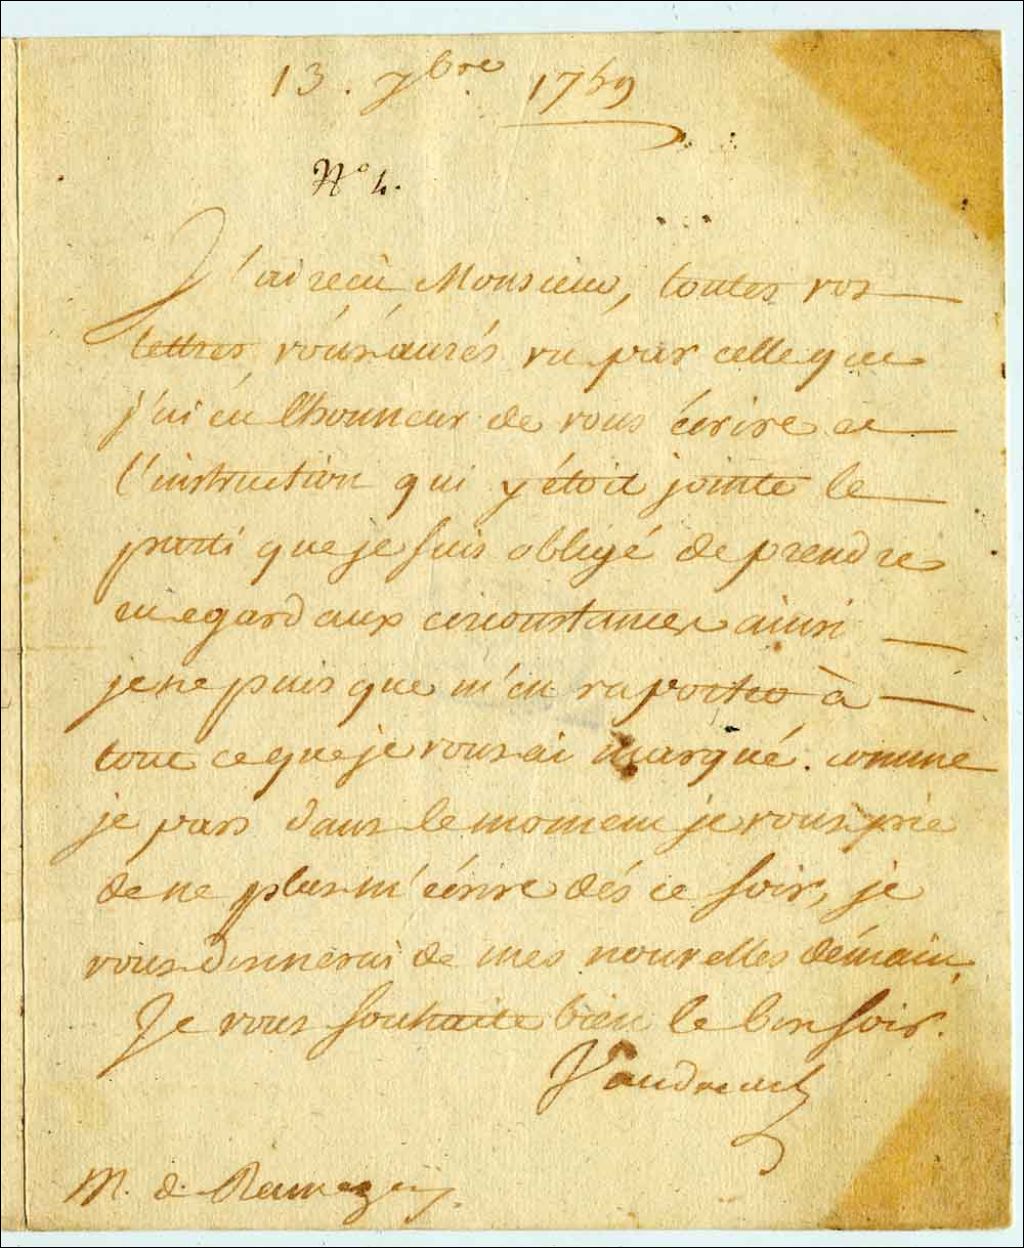 13. 7bre 1759
N° 4.
J'ai recû Monsieur, toutes vos
lettres, vous aurés vu par celle que
j'ai eû l'honneur de vous écrire et
l'instruction qui y étoit jointe le
parti que je suis obligé de prendre
eu egard aux circonstances ainsi
je ne puis que m'en raporter à
tout ce que je vous ai marqué. comme
je pars dans le moment je vous prie
de ne plus m'écrire dés ce soir, je
vous donnerai de mes nouvelles démain,
Je vous souhaite bien le bon soir.
Vaudreuil
M. de Ramezay.